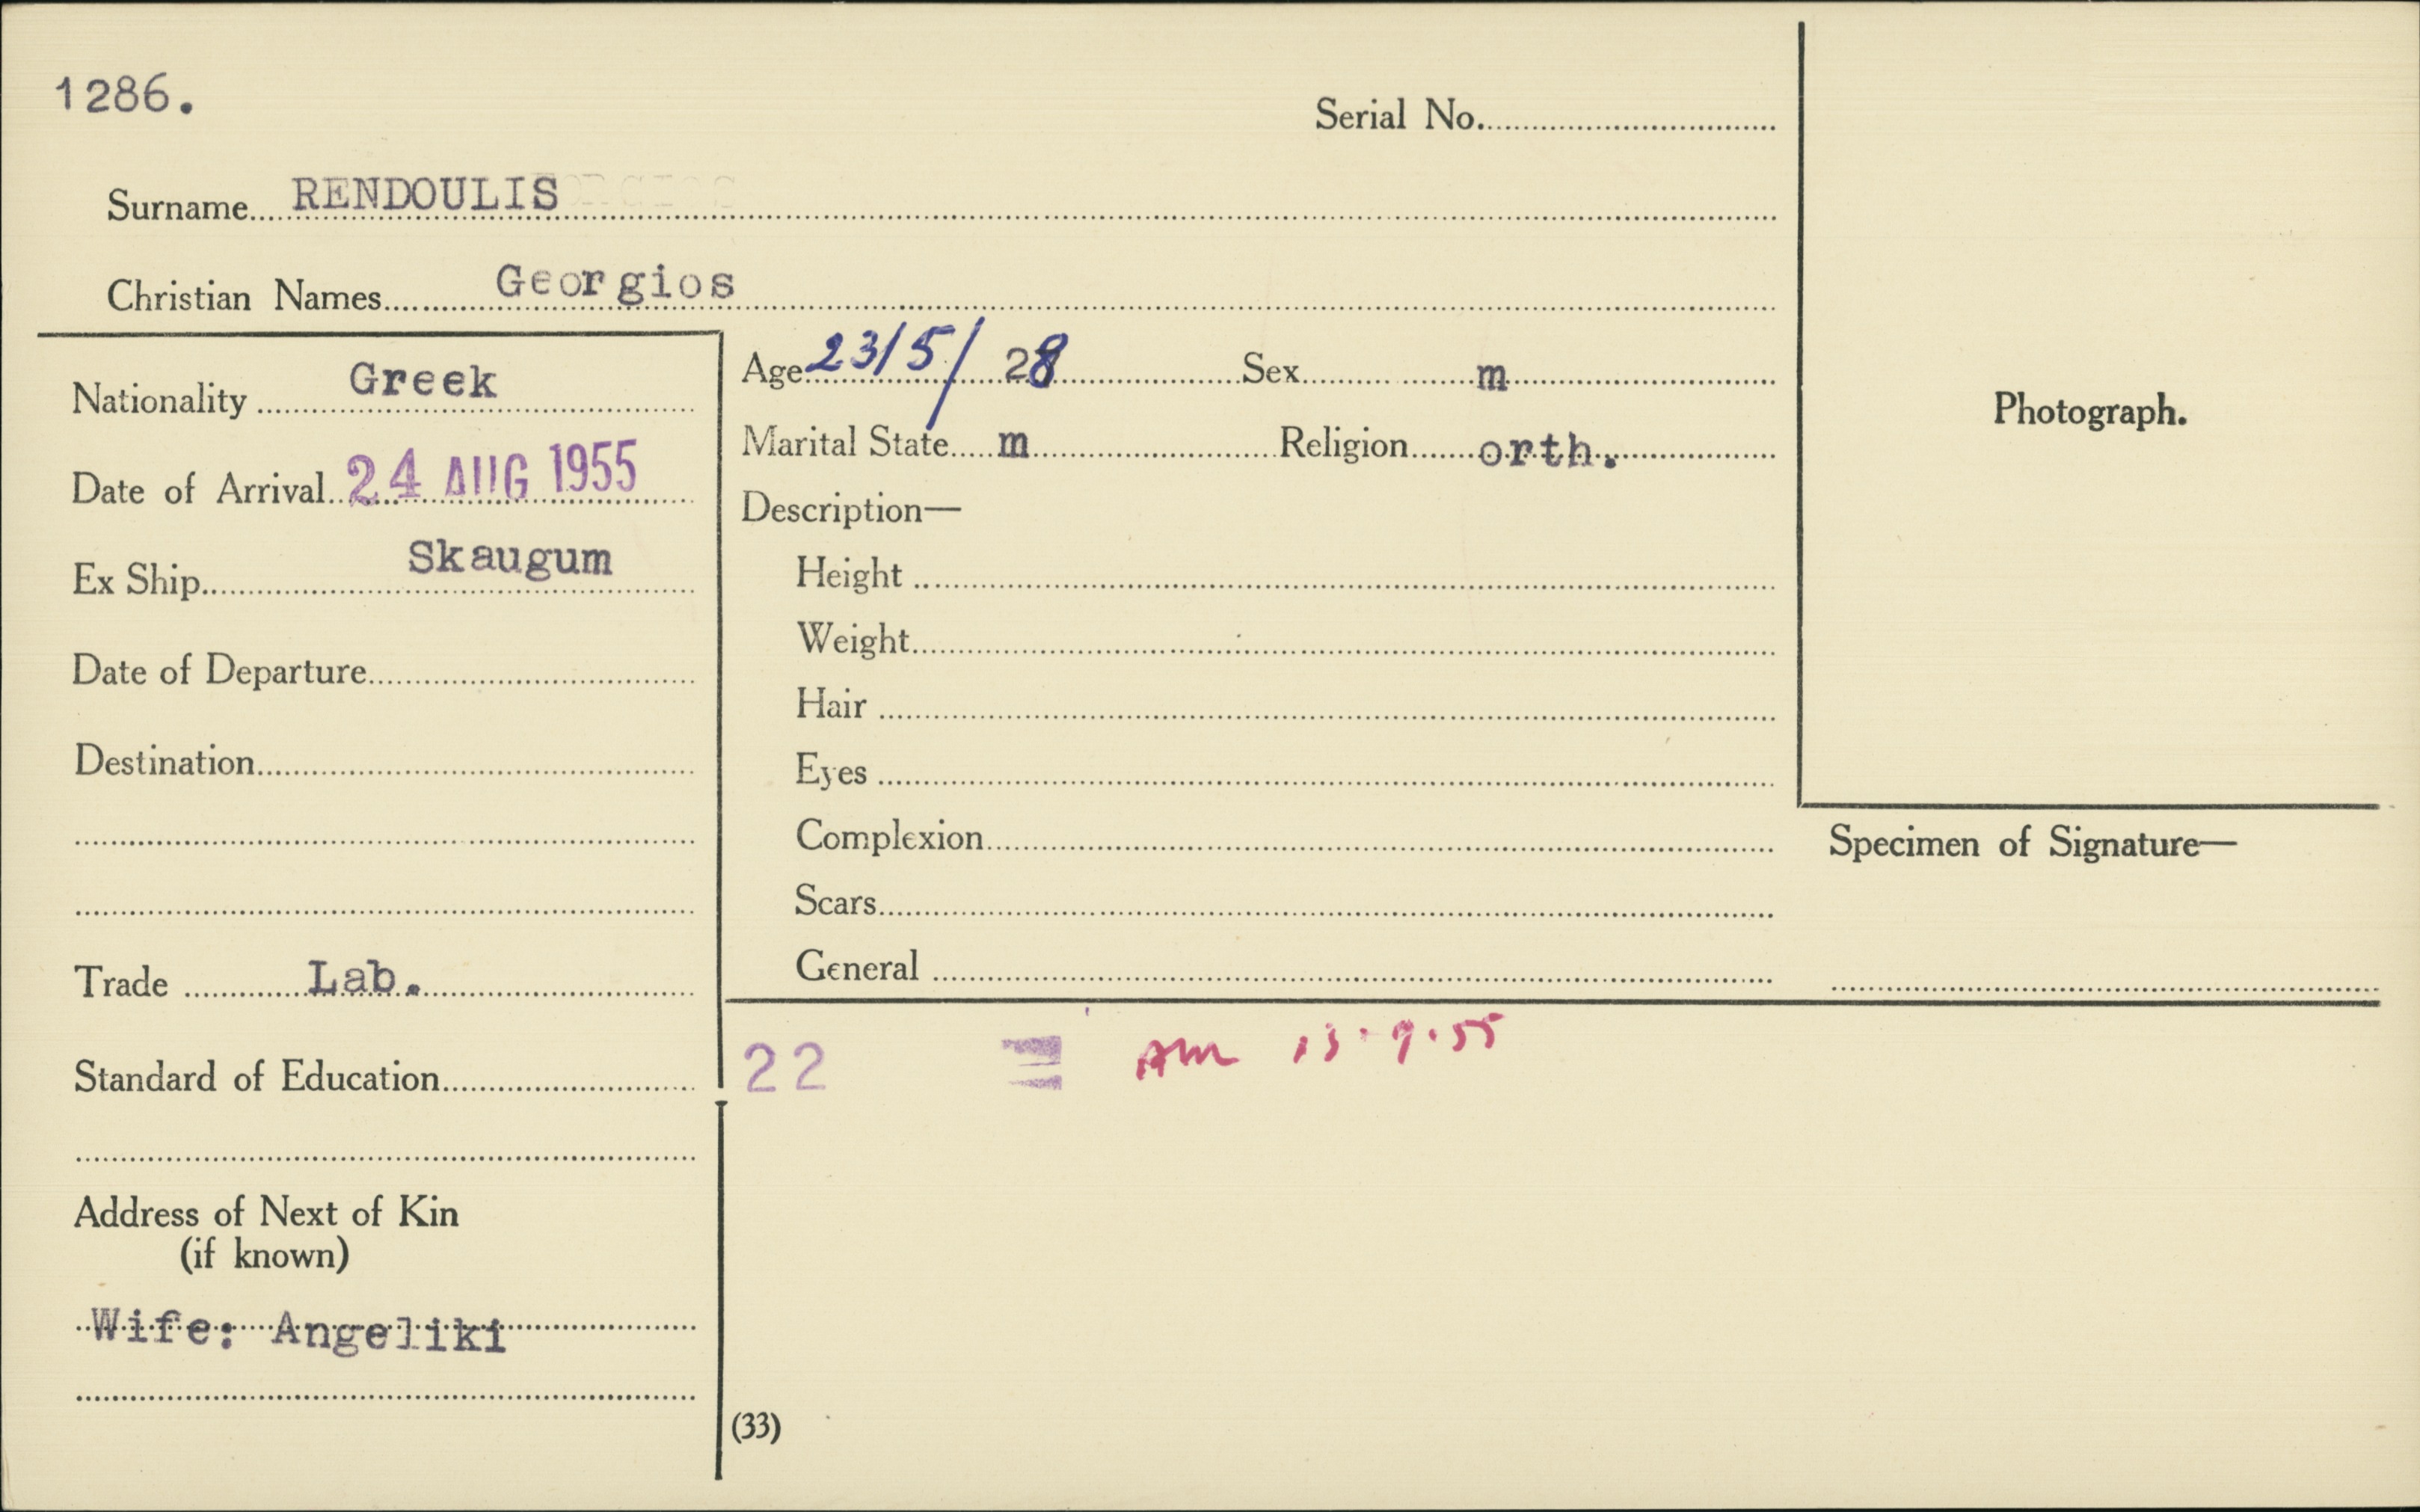 1286.
Serial No.
Surname RENDOULIS
Christian Names Georgios
Nationality Greek
Date of Arrival 24 AUG 1955
Ex Ship Skaugum
Date of Departure
Destination
Trade Lab.
Standard of Education
Address of Next of Kin
(if known)
Wife: Angeliki
Age 23/5/ 28 Sex m
Marital State m Religion orth.
Description—
Height
Weight
Hair
Eyes
Complexion
Scars
General
Photograph.
Specimen of Signature—
22 13.9.55
(33)